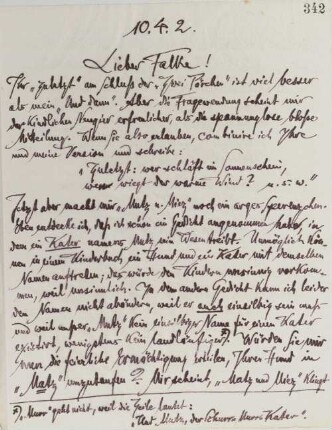 342
10.4.2.
Lieber Falke!
Ihr „Zuletzt“ am Schluß der „Zwei Pärchen“ ist viel besser
als mein „Und dann“. Aber die Fragewendung scheint mir
der kindlichen Neugier erfreulicher, als die spannungslose bloße
Mitteilung. Wenn Sie also erlauben, combinire ich Ihre
und meine Version und schreibe:
Zuletzt: wer schläft im Sonnenschein,
wen wiegt der warme Wind? u.s.w.“
Jetzt aber macht mir „Mutz u. Miez“ noch ein arges
Eben entdecke ich, daß ich schon ein Gedicht angenommen habe, in
dem ein Kater namens Mutz sein Wesen treibt. Unmöglich kön-
nen in einem Kinderbuch ein Hund und ein Kater mit demselben
Namen auftreten; das würde den Kindern unsinnig vorkom-
men, weil unsinnlich. In dem andern Gedicht kann ich leider
den Namen nicht abändern, weil er auch einsilbig sein muß
und weil außer „Mutz“ kein einsilbiger Name für einen Kater
existirt, wenigstens kein landläufiger.*) Würden Sie mir
nun die feierliche Ermächtigung erteilen, Ihren Hund in
„Matz“ umzutaufen? Mir scheint, „Matz und Miez“ klingt
*) „Murr“ geht nicht, weil die Zeile lautet:
„Mutz, der Schnurr-Murr-Kater“.